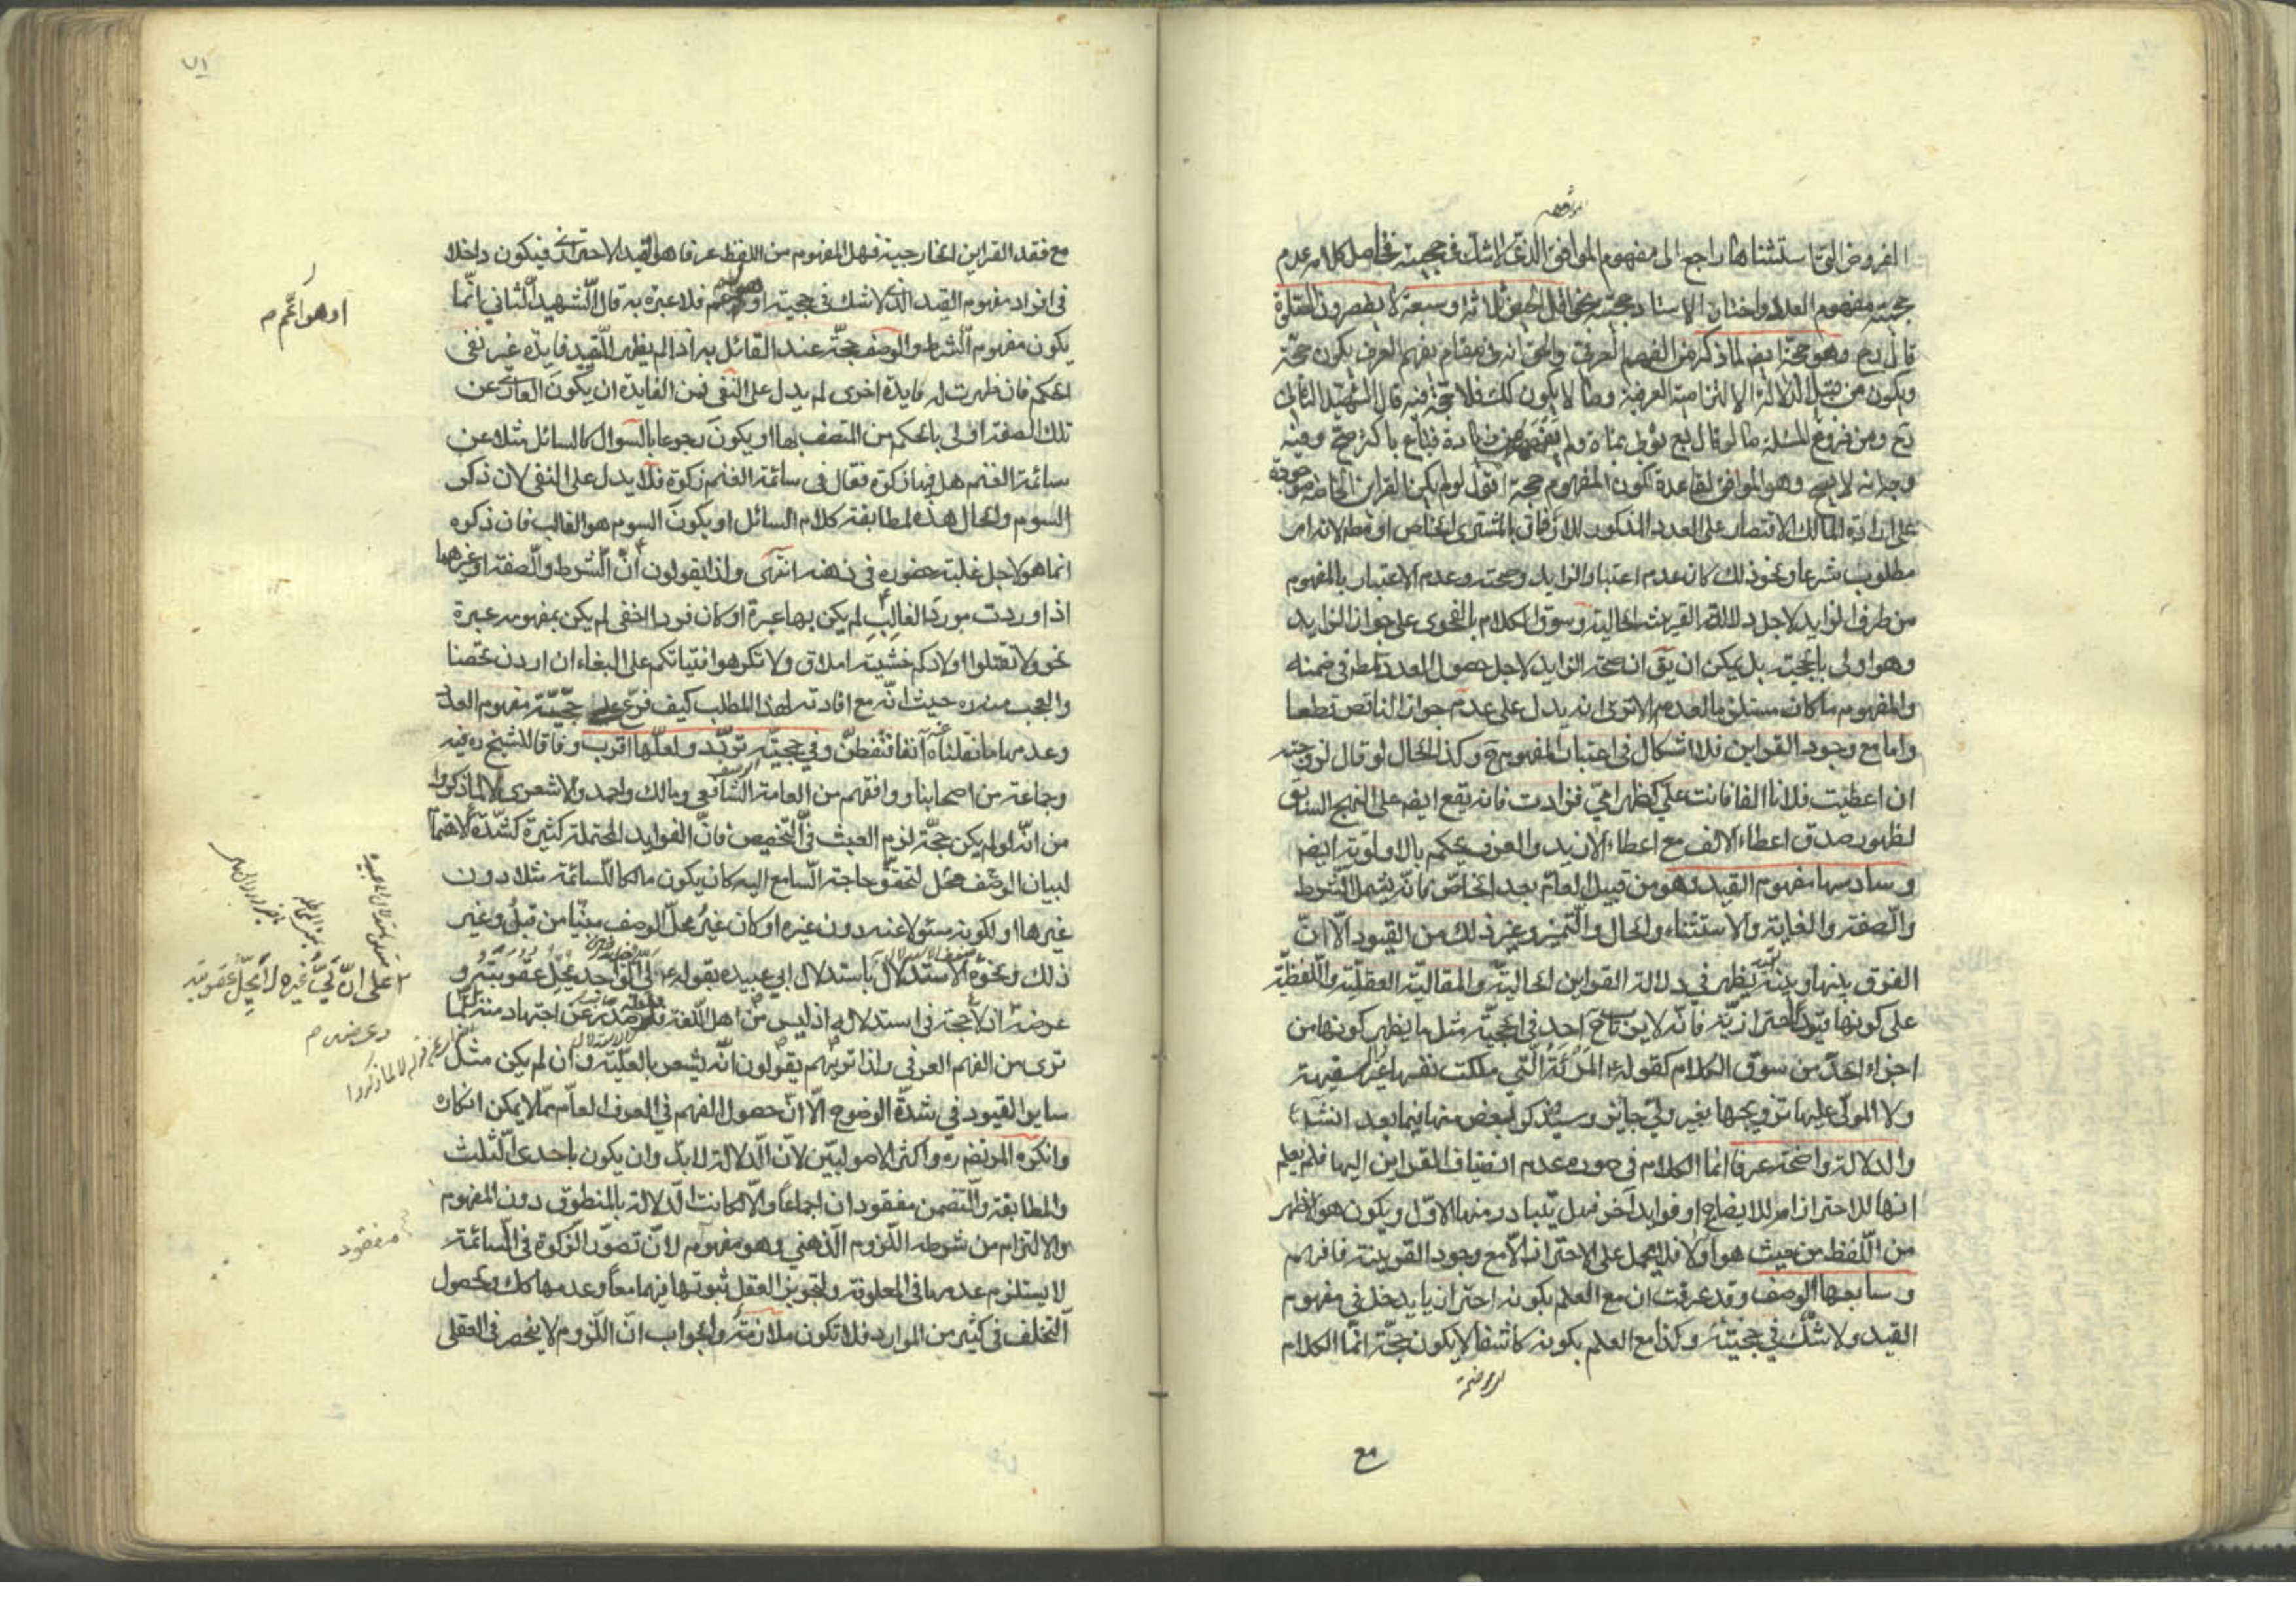 الفروض التي استثناها راجع الى مفهوم الموافق الذي لا شك في حجيته فحاصل كلامه عدم
حجيته مفهوم العدد واختار الاستاد حجيته نحو اقل الحيض ثلاثة وسبعة لا يقصرون الصلوة
قال رح وهو حجة ايضا لما ذكر من الفهم العرفي والحق انه في مقام يفهم العرف يكون حجة
ويكون من قبيل الدلالة الالتزامية العرفية وما لا يكون كك فلا حجة فيه قال الشهيد الثاني
رح ومن فروع المسئلة ما لو قال بع ثوبي بمائة ولم زيادة فباع باكثر صح وفيه
وجه انه لا يصح وهو الموافق لقاعدة كون المفهوم حجة اقول لو لم يكن القراين الخاصة موجودة
على ارادة المالك الاقتصار على العدد المذكور للارفاق بالمشترى الخاص او مطم لانه امر
مطلوب شرعا ونحو ذلك كان عدم اعتبار الزايد وصحته وعدم الاعتبار بالمفهوم
من طرف الزايد لاجل دلالة القرينة الحالية وسوق الكلام بالفحوى على جواز الزايد
وهو اولى بالحجية بل يمكن ان يق ان صحة الزايد لاجل حصول العدد في ضمنه
والمفهوم ما كان مستلزما لعدم الا ترى انه يدل على عدم جواز الناقص قطعا
واما مع وجود القراين فلا اشكال في اعتبار المفهوم ح وكذا الحال لو قال لزوجته
ان اعطيت فلانا الفا فانت علي كظهر امي فزادت فانه يقع ايضم على النهج السابق
لظهور صدق اعطاء الالف مع اعطاء الازيد والعرف يحكم بالاولوية ايضم
وسادسها مفهوم القيد وهو من قبيل العام بعد الخاص فانه يشمل الشرط
والصفة والغاية والاستثناء والحال والتميز وغير ذلك من القيود الا ان
الفرق بينها وبينه يظهر في دلالة القراين الحالية والمقالية العقلية واللفظية
على كونها قيودا احترازية فانه لا يرتاب ح احد في الحجية مثل ما يظهر كونها من
اجزاء الحد من سوق الكلام كقوله ع المرئة التي ملكت نفسها غير سفيهة
ولا المولى عليها تزويجها بغير ولي جايز وسيذكر لبعض منها فيما بعد انشد
والدلالة واضحة عرفا انما الكلام في صورة عدم انضياف القراين اليها فلم يعلم
انها للاحتراز ام للايضاح او فوايد اخر فهل يتبادر منها الاول ويكون هو الاظهر
من اللفظ من حيث هو او لا فلا يحمل على الاحتراز الا مع وجود القرينة فافهم
وسابعها الوصف وقد عرفت ان مع العلم بكونه احترازيا يدخل في مفهوم
القيد ولا شك في حجيته وكذا مع العلم بكونه كاشفا لا يكون حجة انما الكلام
مع
٧١
مع فقد القراين الخارجية فهل المفهوم من اللفظ عرفا هو القيد الاحترازي فيكون داخلا
في افراد مفهوم القيد الذي لا شك في حجيته او فلا عبرة به قال الشهيد الثاني انما
يكون مفهوم الشرط والوصف حجة عند القائل به اذا لم يظهر للقيد فايدة غير نفي
الحكم فان ظهرت له فايدة اخرى لم يدل على النفي فمن الفايدة ان يكون العاري عن
تلك الصفة اولى بالحكم من المتصف بها او يكون رجوعا بالسؤال كالسائل مثلا عن
سائمة الغنم هل فيها زكوة فقال في سائمة الغنم زكوة فلا يدل على النفي لان ذكر
السوم والحال هذه لمطابقة كلام السائل او يكون السوم هو الغالب فان ذكره
انما هو لاجل غلبة حضوره في ذهنه انتهى ولذا يقولون ان الشرط والصفة او غيرهما
اذا وردت مورد الغالب لم يكن بها عبرة او كان فردا اخفى لم يكن بمفهومه عبرة
نحو ولا تقتلوا اولادكم خشية املاق ولا تكرهوا فتياتكم على البغاء ان اردن تحصنا
والعجب منه ره حيث انه مع افادته لهذا المطلب كيف فرع على حجية مفهوم العدد
وعدمها ما نقلناه عنه آنفا فتفطن وفي حجيته تردد ولعلها اقرب وفاقا للشيخ ره فيه
وجماعة من اصحابنا ووافقهم من العامة الشافعي ومالك واحمد والاشعري لا لما ذكروا
من انه لو لم يكن حجة لزم العبث في التخصيص فان الفوايد المحتملة كثيرة كشدة الاهتمام
لبيان الوصف محل لتحقق حاجة السامع اليه كان يكون مالكا للسائمة مثلا دون
غيرها او لكونه مسئولا عنه دون غيره او كان غير محل الوصف مبنيا من قبل وغير
ذلك ونحوه الاستدلال باستدلال ابي عبيدة بقوله ع لي الواجد يحل عقوبته و
عرضه اذ لا حجة في استدلاله اذ ليس من اهل اللغة عن اجتهاد منه بل لما
ترى من الفهم العرفي ولذا تريهم يقولون انه يشعر بالعلية وان لم يكن مثل
ساير القيود في شدة الوضوح الا ان حصول الفهم في العرف العام مما لا يمكن انكاره
وانكره المرتضى ره واكثر الاصوليين لان الدلالة لا بد وان يكون باحدى الثلث
والمطابقة والتضمن مفقودان اجماعا والا لكانت الدلالة بالمنطوق دون المفهوم
والالتزام من شرطه اللزوم الذهني وهو مفهوم لان تصور الزكوة في السائمة
لا يستلزم عدمها في المعلوفة ولتجويز العقل ثبوتها فيهما معا وعدمها كك وبحصول
التخلف في كثير من الموارد فلا تكون ملازمة والجواب ان اللزوم لا ينحصر في العقلي
او هو اعم م
على ان لي غيره لا يحل عقوبته
وعرضه م
مفقود